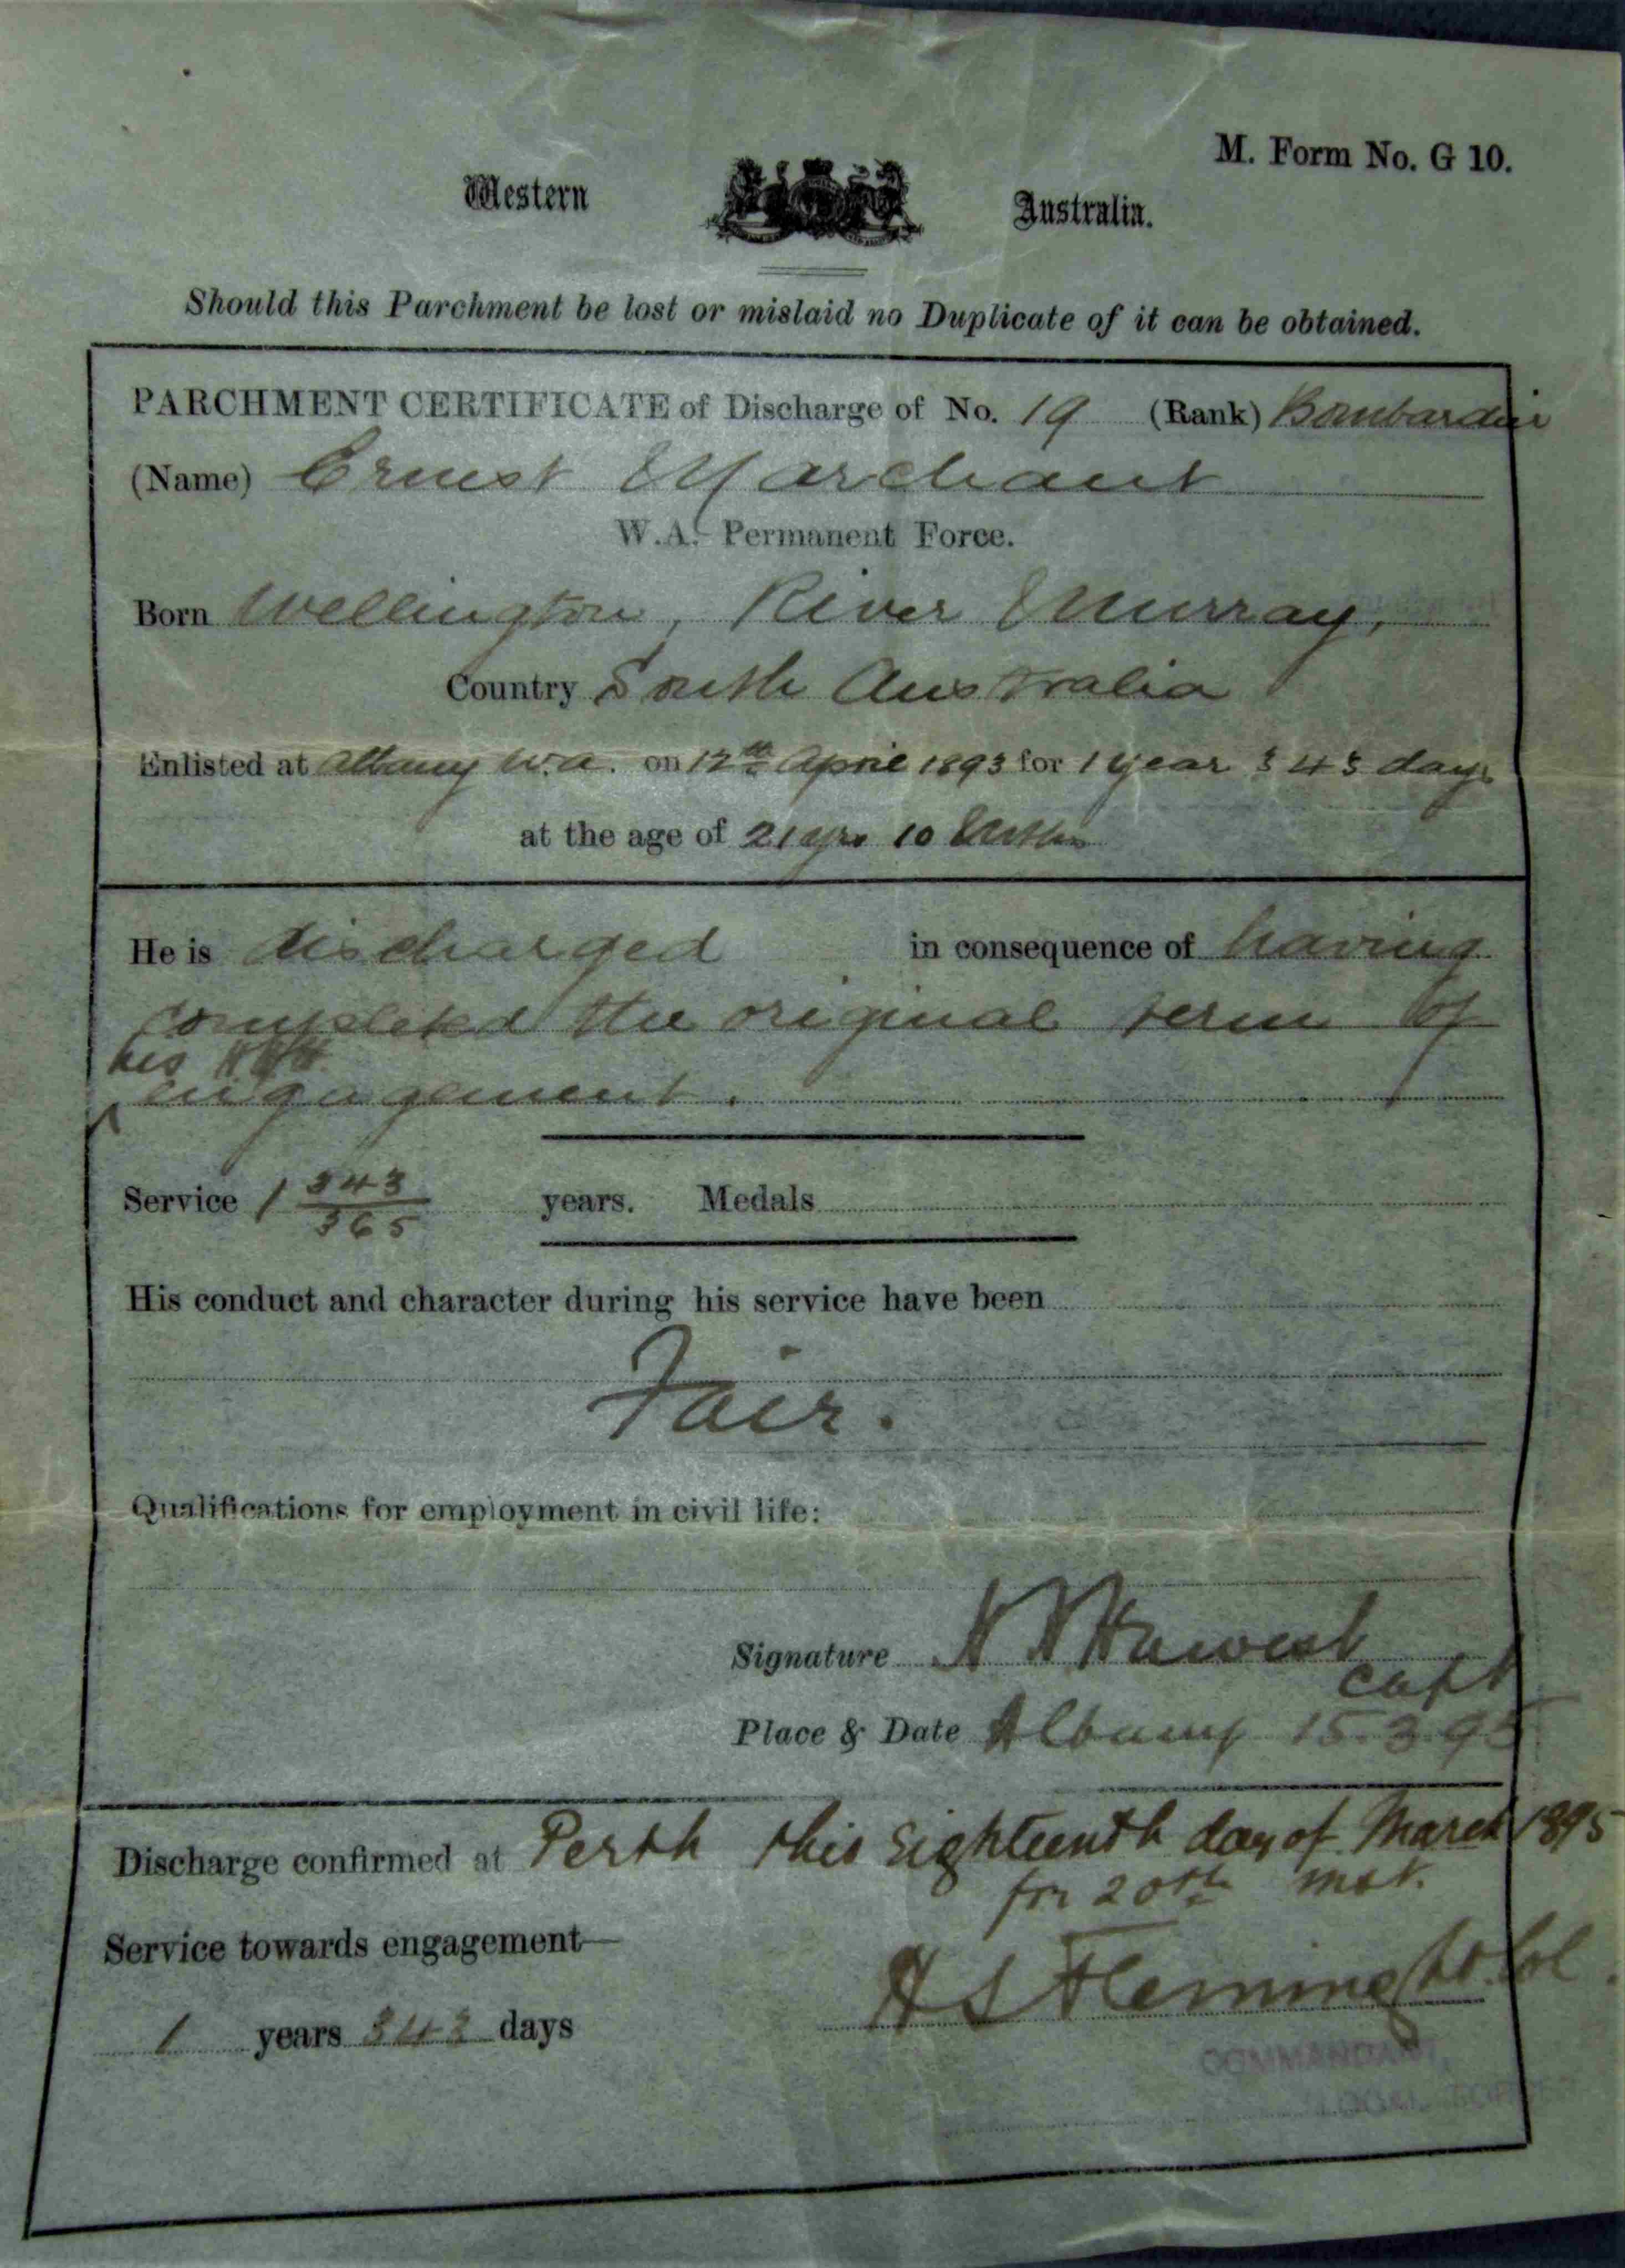 M. Form No. G 10.
Western Australia.
Should this Parchment be lost or mislaid no Duplicate of it can be obtained.
PARCHMENT CERTIFICATE of Discharge of No. 19 (Rank) Bombardier
(Name) Ernest Marchant
W.A. Permanent Force.
Born Wellington, River Murray,
Country South Australia
Enlisted at Albany W.A. on 12th April 1893 for 1 year 343 days
at the age of 21 yrs 10 Mths
He is discharged in consequence of having
completed the original term of
his
engagement.
Service 1 343/365 years. Medals
His conduct and character during his service have been
Fair.
Qualifications for employment in civil life:
Signature
Capt
Place & Date Albany 15.3.95
Discharge confirmed at Perth this Eighteenth day of March 1895
for 20th inst.
Service towards engagement—
H S Fleming Lt. Col.
1 years 343 days
COMMANDANT,
LOCAL FORCES